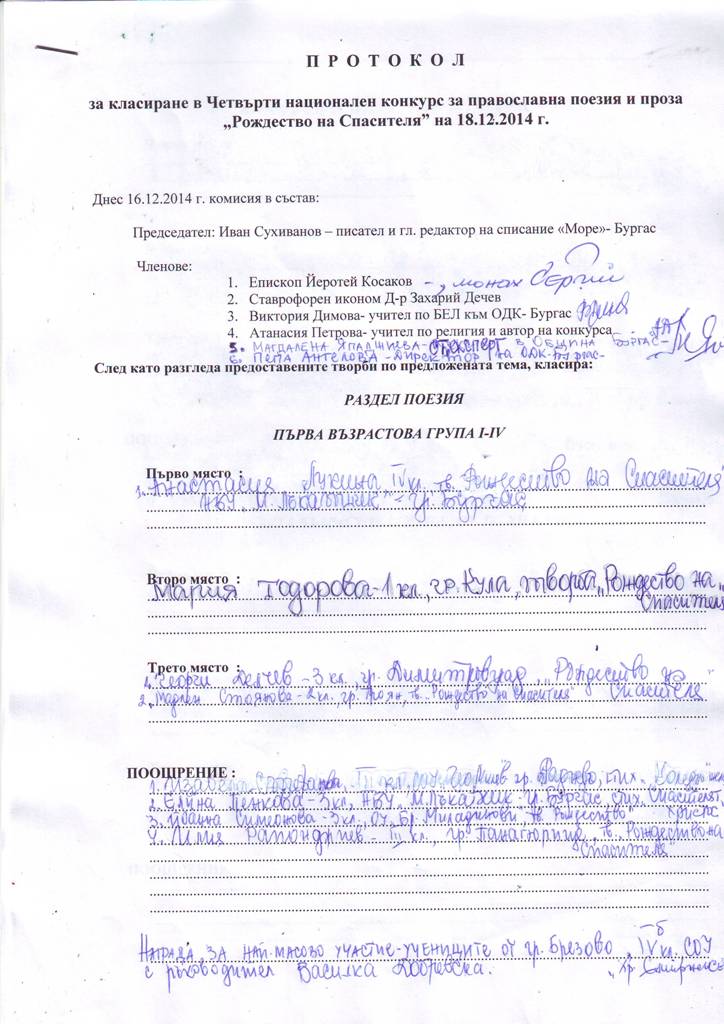 П Р О Т О К О Л
за класиране в Четвърти национален конкурс за православна поезия и проза
„Рождество на Спасителя” на 18.12.2014 г.
Днес 16.12.2014 г. комисия в състав:
Председател: Иван Сухиванов – писател и гл. редактор на списание «Море»- Бургас
Членове:
1. Епископ Йеротей Косаков - монах Сергий
2. Ставрофорен иконом Д-р Захарий Дечев
3. Виктория Димова- учител по БЕЛ към ОДК- Бургас
4. Атанасия Петрова- учител по религия и автор на конкурса
5. Магдалена -експерт в Община Бургас-
6. Пепа Ангелова -Директор на ОДК-Бургас-
След като разгледа предоставените творби по предложената тема, класира:
РАЗДЕЛ ПОЕЗИЯ
ПЪРВА ВЪЗРАСТОВА ГРУПА I-IV
Първо място :
Анастасия Лукина IV кл. тв. Рождество на Спасителя"
НБУ - гр. Бургас
Второ място :
Мария Тодорова-1 кл., гр. Кула, творба „Рождество на
Спасителя
Трето място :
1. Георги Делчев - 3 кл., гр. Димитровград „Рождество на
Спасителя
2. Мадлен Стоянова-2 кл., гр. Троян, тв. „Рождество на Спасителя"
ПООЩРЕНИЕ :
1. Изабела гр. стих.
2. Елина Пенкова - 3 кл., НБУ, гр. Бургас, стих. Спасителят
3. Йоанна Симеонова - 3 кл., ОУ „Бр. Миладинови" тв. Рождество Христ
4. Лилия - III кл., гр. Панагюрище, тв. „Рождество на
Спасителя"
Награда за най-масово участие-учениците от гр. Брезово, IV б кл. СОУ
с ръководител Василка Добревска.